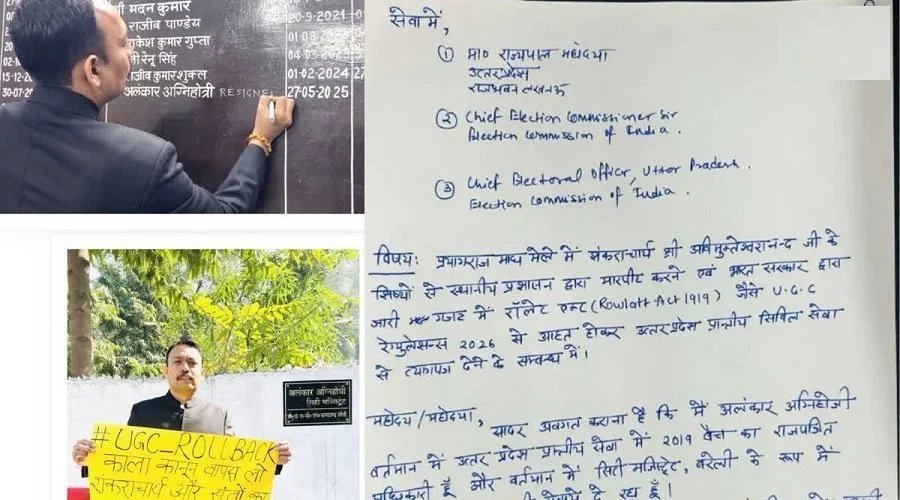 श्री मदन कुमार
20-9-2021
राजीव पाण्डेय
01-08
राकेश कुमार गुप्ता
04-03
रेनू सिंह
15-12-20
राजीव कुमार शुक्ल
01-02-2024
30-07
अलंकार अग्निहोत्री RESIGNE
27-05-2025
अलंकार अग्निहोत्री
सिटी मजिस्ट्रेट
#UGC_ROLLBACK
काला कानून वापस लो
शंकराचार्य और संतों का
सेवा में,
① मा० राज्यपाल महोदया
उत्तर प्रदेश
राजभवन लखनऊ
② Chief Election Commissioner Sir
Election Commission of India.
③ Chief Electoral Officer, Uttar Pradesh.
Election Commission of India.
विषय: प्रयागराज माघ मेले में शंकराचार्य श्री अविमुक्तेश्वरानन्द जी के
शिष्यों से स्थानीय प्रशासन द्वारा मारपीट करने एवं भारत सरकार द्वारा
जारी गजट में रॉलेट एक्ट (Rowlatt Act 1919) जैसे U.G.C
रेगुलेसन्स 2026 से आहत होकर उत्तर प्रदेश प्रान्तीय सिविल सेवा
से त्यागपत्र देने के सम्बन्ध में।
महोदय/महोदया,
सादर अवगत कराना है कि मैं अलंकार अग्निहोत्री
वर्तमान में उत्तर प्रदेश प्रान्तीय सेवा में 2019 बैच का राजपत्रित
अधिकारी हूँ और वर्तमान में सिटी मजिस्ट्रेट, बरेली के रूप में
दे रहा हूँ।